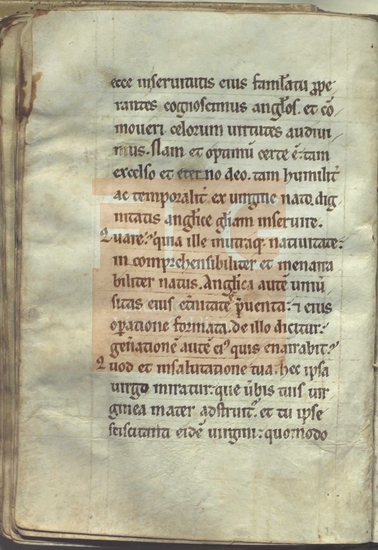 ecce inseruitutis eius famulatu prope
rantes cognoscimus anglos. et cō
moueri celorum uirtutes audiui
mus. Nam et optimū certe ē. tam
excelso et eterno deo. tam humilit̄
ac temporalit̄ ex uirgine nato. dig
nitatis anglice gl̄iam inserure.
Quare? quia ille in utraq; natiuitate.
in comprehensibiliter et inenarra
biliter natus. Anglica autē uniū
sitas eius et̄nitate p̄uenta. & eius
op̄atione formata. de illo dicitur.
gen̄ationē autē ei᷒ quis enarrabit?
Quod et insalutatione tua. hec ipsa
uirgo miratur. que ūbis tuis uir
ginea mater adstruit᷑. et tu ipse
sciscitanti eidē uirgini. quomodo